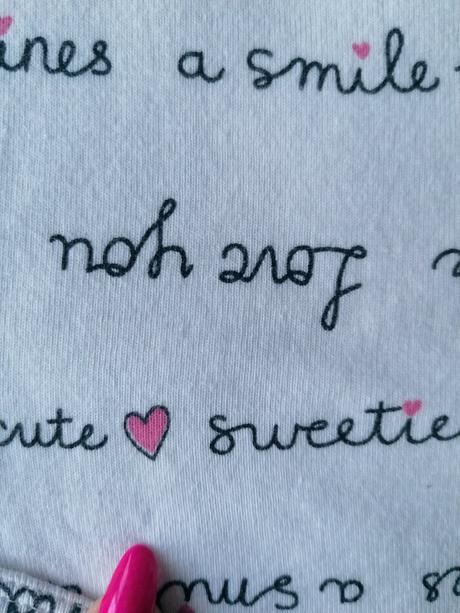 ines a smile
Love you
cute sweetie